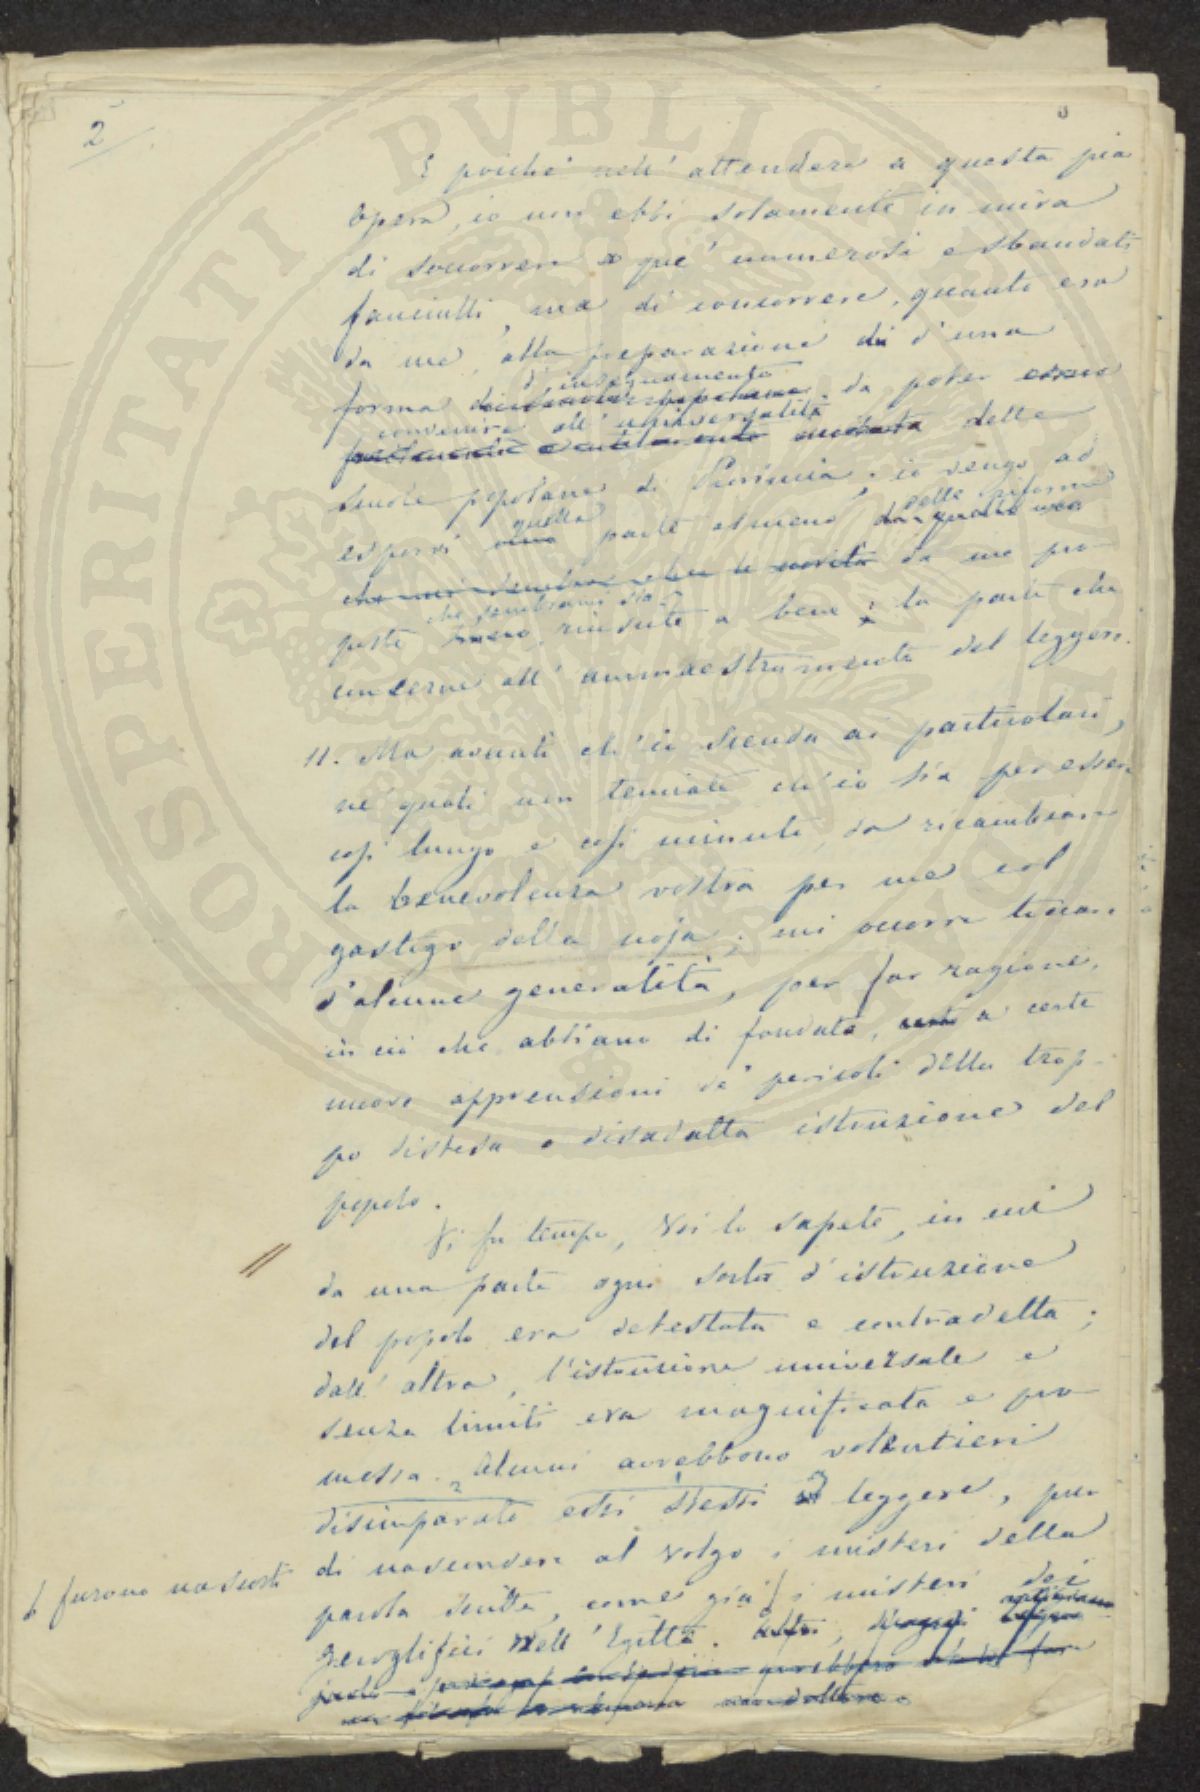 2
E poiché nell' attendere a questa pia
opera, io non ebbi solamente in mira
di soccorrere que' numerosi e sbandati
fanciulli, ma di concorrere, quanto era
da me, alla preparazione di d'una
d'insegnamento
forma da poter
convenire all' universalità
delle
scuole popolane di Provincia; io vengo ad
quella delle riforme
esporvi parte almeno
che la novità da me pro-
che sembrami sia
poste riuscite a bene; la parte che
concerne all' ammaestramento del leggere.
11. Ma avanti ch'io scenda ai particolari,
ne' quali non temiate ch'io sia per essere
così lungo e così minuto, da ricambiare
la benevolenza vostra per me col
gastigo della noja; mi occorre toccare
d'alcune generalità, per far ragione,
in ciò che abbiano di fondato, a certe
nuove apprensioni de' pericoli della trop-
po distesa o disadatta istruzione del
popolo.
Vi fu tempo, Voi lo sapete, in cui
//
da una parte ogni sorta d'istruzione
del popolo era detestata e contradetta;
dall' altra, l'istruzione universale e
senza limiti era magnificata e pro-
messa. Alcuni avrebbono volentieri
disimparato essi stessi a leggere, pur
di nascondere al volgo i misteri della
parola scritta, come già i misteri dei
furono nascosti
geroglifici nell' Egitto. Altri,
PROSPERITATI PUBLICAE